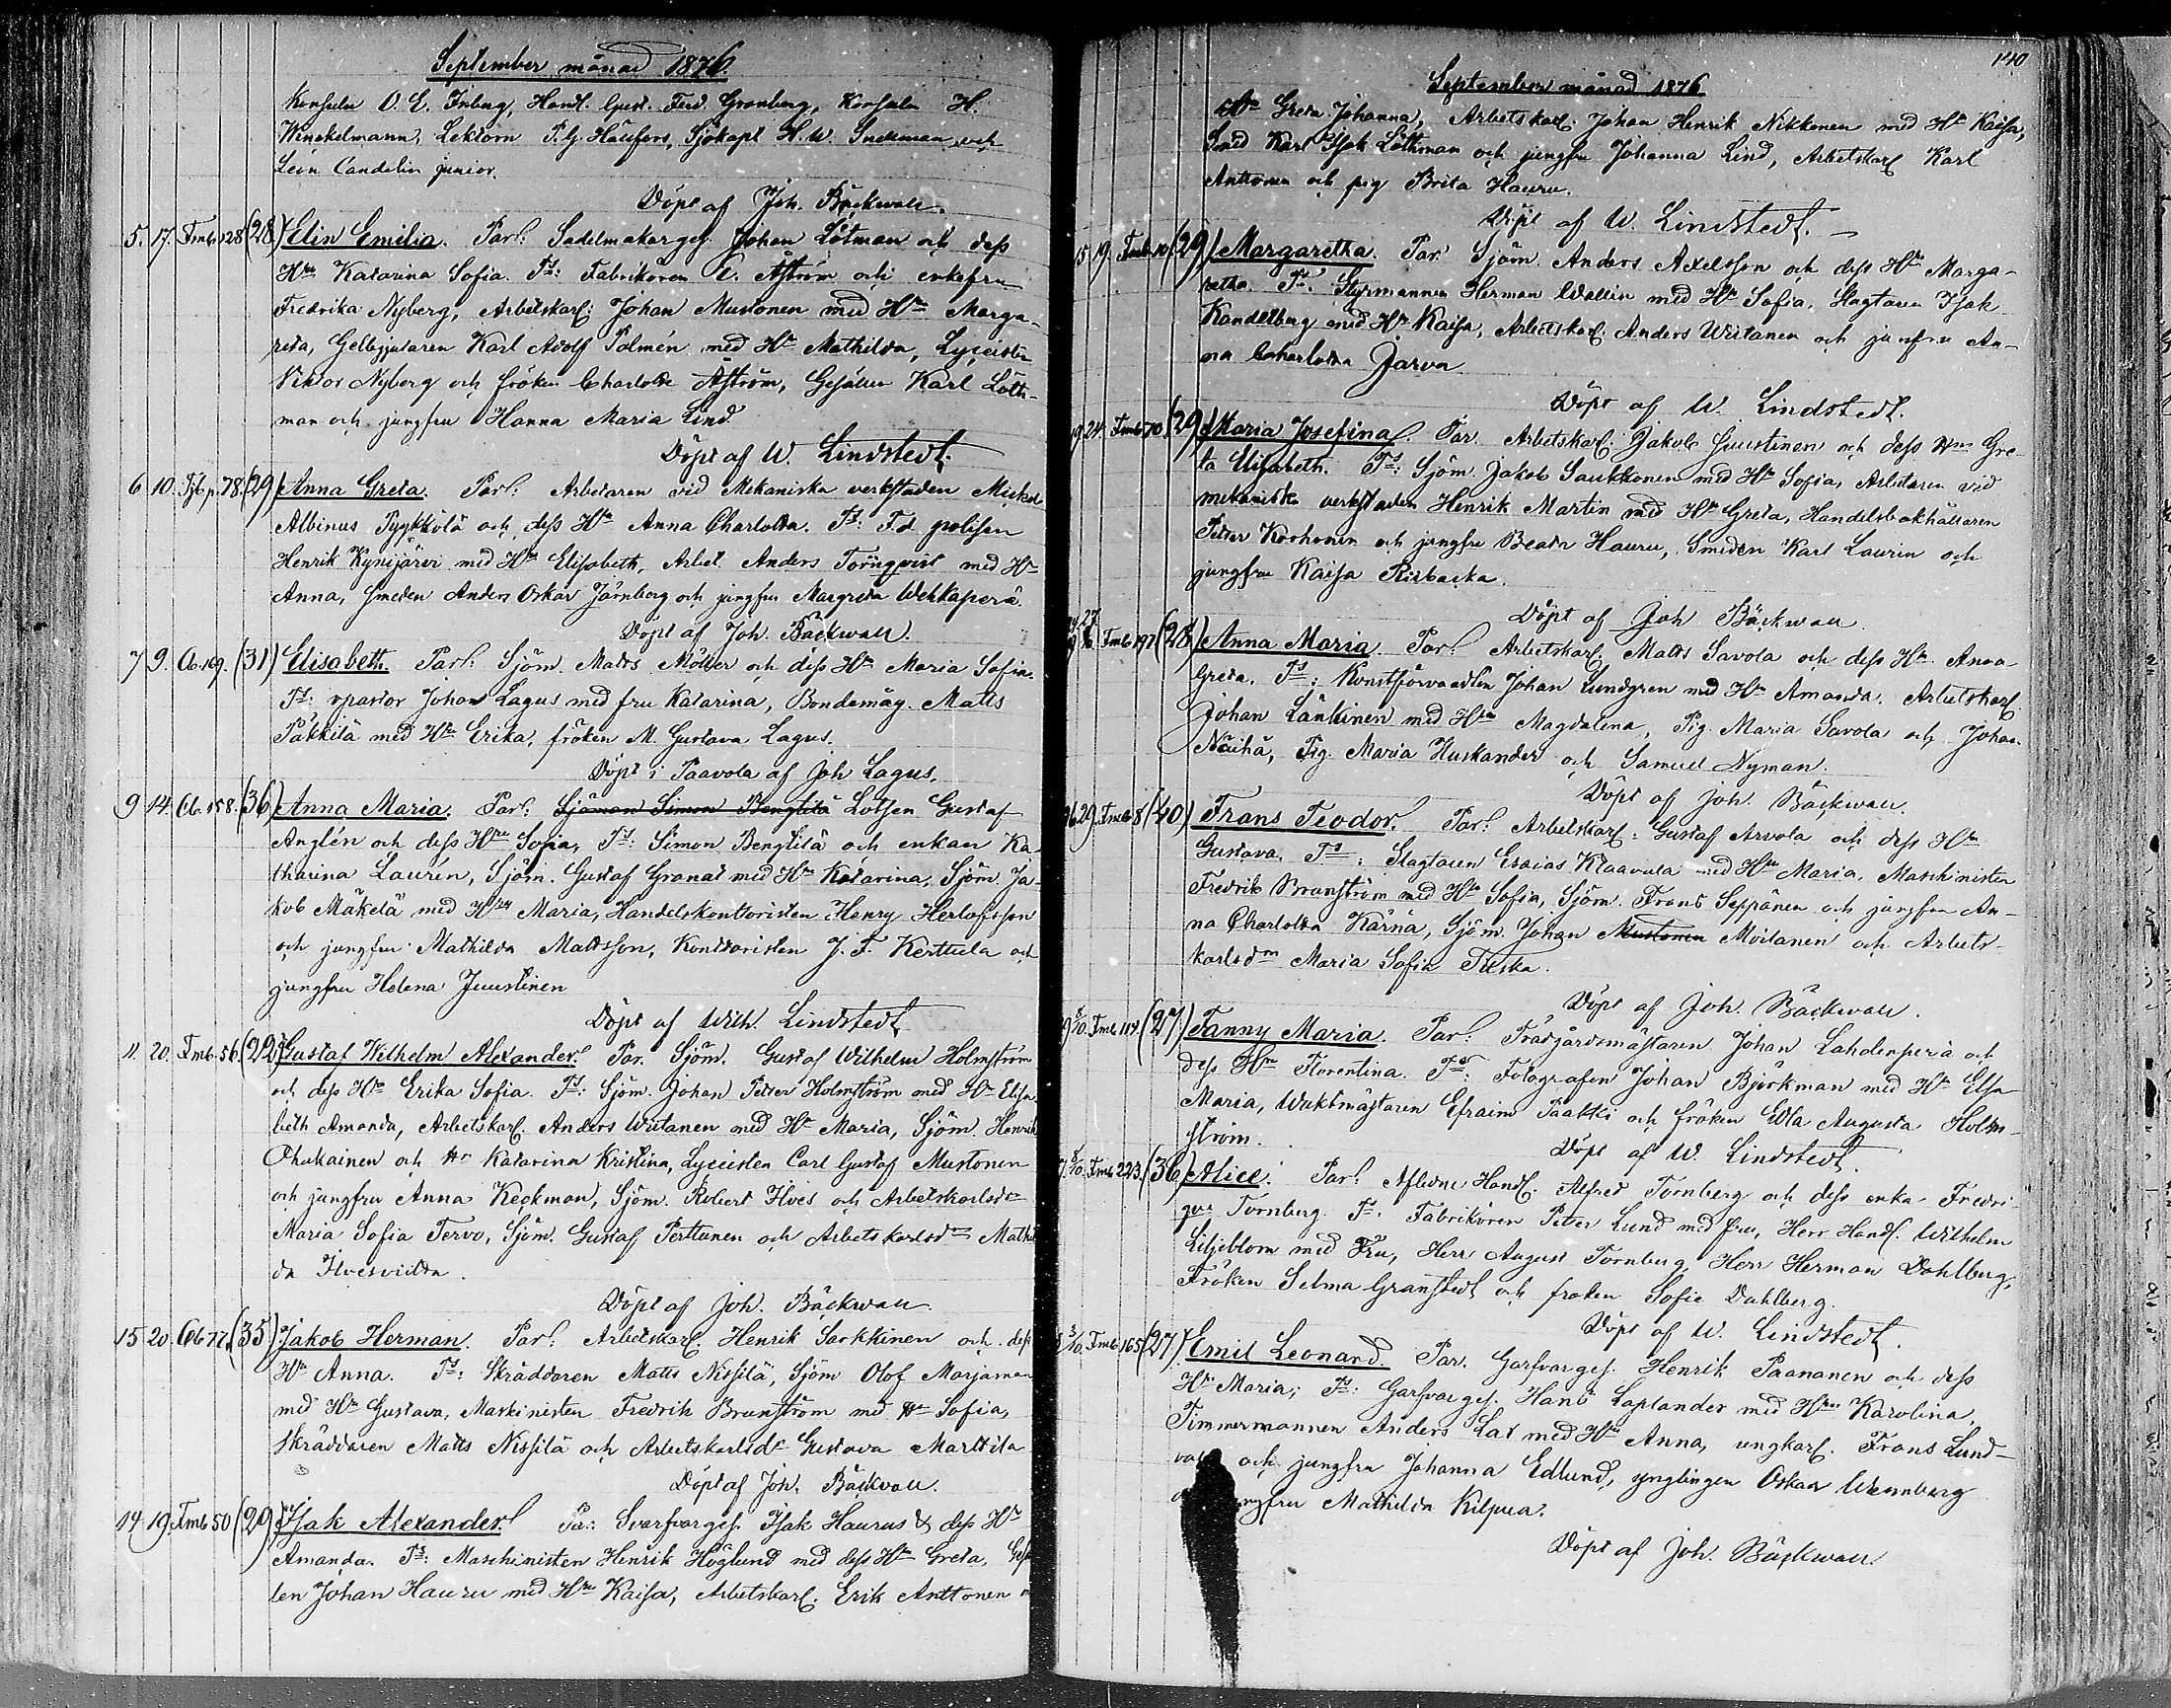 September månad 1876.
Konsuln O. E. Friberg, Handl. Gust. Ferd. Granberg, Konsuln H.
Winckelmann, Lektorn P. G. Häufors, Sjökapt H. W. Snellman och
León Candelin junior.
Döpt af Joh. Bäckwall.
5. 17. Tmb. 128 (28) Elin Emilia. Par.: Sadelmakarges. Johan Lötman och dess
Hru Katarina Sofia. Ts: Fabrikören C. Åström och enkefru
Fredrika Nyberg, Arbetskarl. Johan Mustonen med Hru Marga-
reta, Gelbgjutaren Karl Adolf Polmén med Hru Mathilda, Lyceisten
Viktor Nyberg och fröken Charlotte Åström, Gesällen Karl Löth-
man och jungfru Hanna Maria Lind
Döpt af W. Lindstedt.
6 10. p. 78. (29) Anna Greta. Par.: Arbetaren vid Mekaniska verkstaden Mickel
Albinus Pypkkölä och dess Hru Anna Charlotta. Ts: F.d. polisen
Henrik Kynijärvi med Hru Elisabeth, Arbet. Anders Törnqvist med Hru
Anna, Smeden Anders Oskar Järnberg och jungfru Margreta Wehkaperä.
Döpt af Joh. Bäckwall.
7 9. Cb. 169. (31) Elisabeth. Par.: Sjöm. Matts Möller och dess Hru Maria Sofia.
Ts: vpastor Johan Lagus med fru Katarina, Bondemåg. Matts
Päkkilä med Hru Erika, fröken M. Gustava Lagus.
Döpt i Paavola af Joh Lagus.
9 14. Cb. 158. (36) Anna Maria. Par.: Sjöman Simon Bengtilä Lotsen Gustaf
Anglén och dess Hru Sofia, Ts: Simon Bengtilä och enkan Ka-
tharina Laurén, Sjöm. Gustaf Granat med Hru Katarina, Sjöm. Ja-
kob Mäkelä med Hru Maria, Handelskontoristen Henry Herlofsson
och jungfru Mathilda Mattsson, Kontoristen J. F. Kerttula och
jungfru Helena Juustinen
Döpt af Wilh. Lindstedt
11. 20. Tmb. 56. (22) Gustaf Wilhelm Alexander. Par. Sjöm. Gustaf Wilhelm Holmström
och dess Hru Erika Sofia. Ts: Sjöm. Johan Petter Holmström med Hru Elisa-
beth Amanda, Arbetskarl. Anders Wiitanen med Hru Maria, Sjöm. Henrik
Ohukainen och Hr Katarina Kristina, Lyceisten Carl Gustaf Mustonen
och jungfru Anna Keckman, Sjöm. Robert Ilves och Arbetskarlsdr
Maria Sofia Tervo, Sjöm. Gustaf Perttunen och Arbetskarlsdr Mathil
da Ilvesvirta.
Döpt af Joh. Bäckwall.
15 20. Cb 77. (35) Jakob Herman. Par.: Arbetskarl. Henrik Sarkkinen och dess
Hru Anna. Ts: Skräddaren Matts Nissilä, Sjöm Olof Marjaman
med Hru Gustava, Maskinisten Fredrik Brunström med Hr Sofia,
Skräddaren Matts Nissilä och Arbetskarlsdr Gustava Marttila
Döpt af Joh. Bäckwall.
14. 19. Tmb 50 (29) Isak Alexander. Par.: Svarfvarges. Isak Haurus & dess Hru
Amanda. Ts: Maschinisten Henrik Höglund med dess Hru Greta,
len Johan Hauru med Hru Kaisa, Arbetskarl. Erik Anttonen
140
September månad 1876
Hr Greta Johanna, Arbetskarl. Johan Henrik Nikkonen med Hr Kaisa,
Smed Karl Isak Löthman och jungfru Johanna Lind, Arbetskarl Karl
Anttonen och pig Brita Hauru.
Döpt af W. Lindstedt.
15. 19. Tmb. 10 (29) Margaretha. Par. Sjöm. Anders Axelsson och dess Hr Marga-
retha. Ts. Styrmannen Herman Wallin med Hr Sofia, Slagtaren Isak
Kandelberg med Hr Kaisa, Arbetskarl. Anders Wiitanen och jungfru An-
na Charlotta Jarva
Döpt af W. Lindstedt.
19 24. Tmb 70. (29) Maria Josefina. Par. Arbetskarl. Jakob Juustinen och dess Hru Gre-
ta Elisabeth. Ts: Sjöm. Jakob Saukkonen med Hr Sofia, Arbetaren vid
mekaniska verkstaden Henrik Martin med Hr Greta, Handelsbokhållaren
Petter Korhonen och jungfru Beata Hauru, Smeden Karl Laurin och
jungfru Kaisa Rirbacka.
Döpt af Joh Bäckwall.
Tmb 197 (28) Anna Maria. Par. Arbetskarl. Matts Savola och dess Hr. Anna
Greta. Ts: Konstförvandten Johan Lundgren med Hr Amanda, Arbetskarl.
Johan Länkinen med Hru Magdalena, Pig. Maria Savola och Johan
Näihä, Pig. Maria Huskander och Samuel Nyman.
Döpt af Joh. Bäckwall.
26 29. Tmb 8 (40) Frans Teodor. Par. Arbetskarl. Gustaf Arvola och dess Hru
Gustava. Ts: Slagtaren Esaias Klaavula med Hru Maria, Maschinisten
Fredrik Brunström med Hr Sofia, Sjöm. Frans Seppänen och jungfru An-
na Charlotta Kärnä, Sjöm. Johan Mustonen Moilanen och Arbets-
karlsdr Maria Sofia Tuska.
Döpt af Joh. Bäckwall.
8/10. Tmb. 114. (27) Fanny Maria. Par. Trädgårdsmästaren Johan Lahdenperä och
dess Hru Florentina. Ts: Fotografen Johan Björkman med Hr Elsa
Maria, Waktmästaren Efraim Paakki och fröken Edla Augusta Holm-
ström.
Döpt af W. Lindstedt.
8/10. Tmb 223. (36) Alice. Par. Aflidne Handl. Alfred Tornberg och dess enka Fredri-
que Tornberg. Ts. Fabrikören Peter Lund med fru, Herr Handl. Wilhelm
Liljeblom med Fru, Herr August Tornberg, Herr Herman Dahlberg,
Fröken Selma Granstedt och fröken Sofie Dahlberg.
Döpt af W. Lindstedt.
3/10. Tmb 165 (27) Emil Leonard. Par. Garfvarges. Henrik Paananen och dess
Hr Maria; Ts: Garfvarges. Hans Laplander med Hru Karolina,
Timmermannen Anders Lax med Hru Anna, ungkarl. Frans Lund-
och jungfru Johanna Edlund, ynglingen Oskar Wennberg
Mathilda Kilpua.
Döpt af Joh. Bäckwall